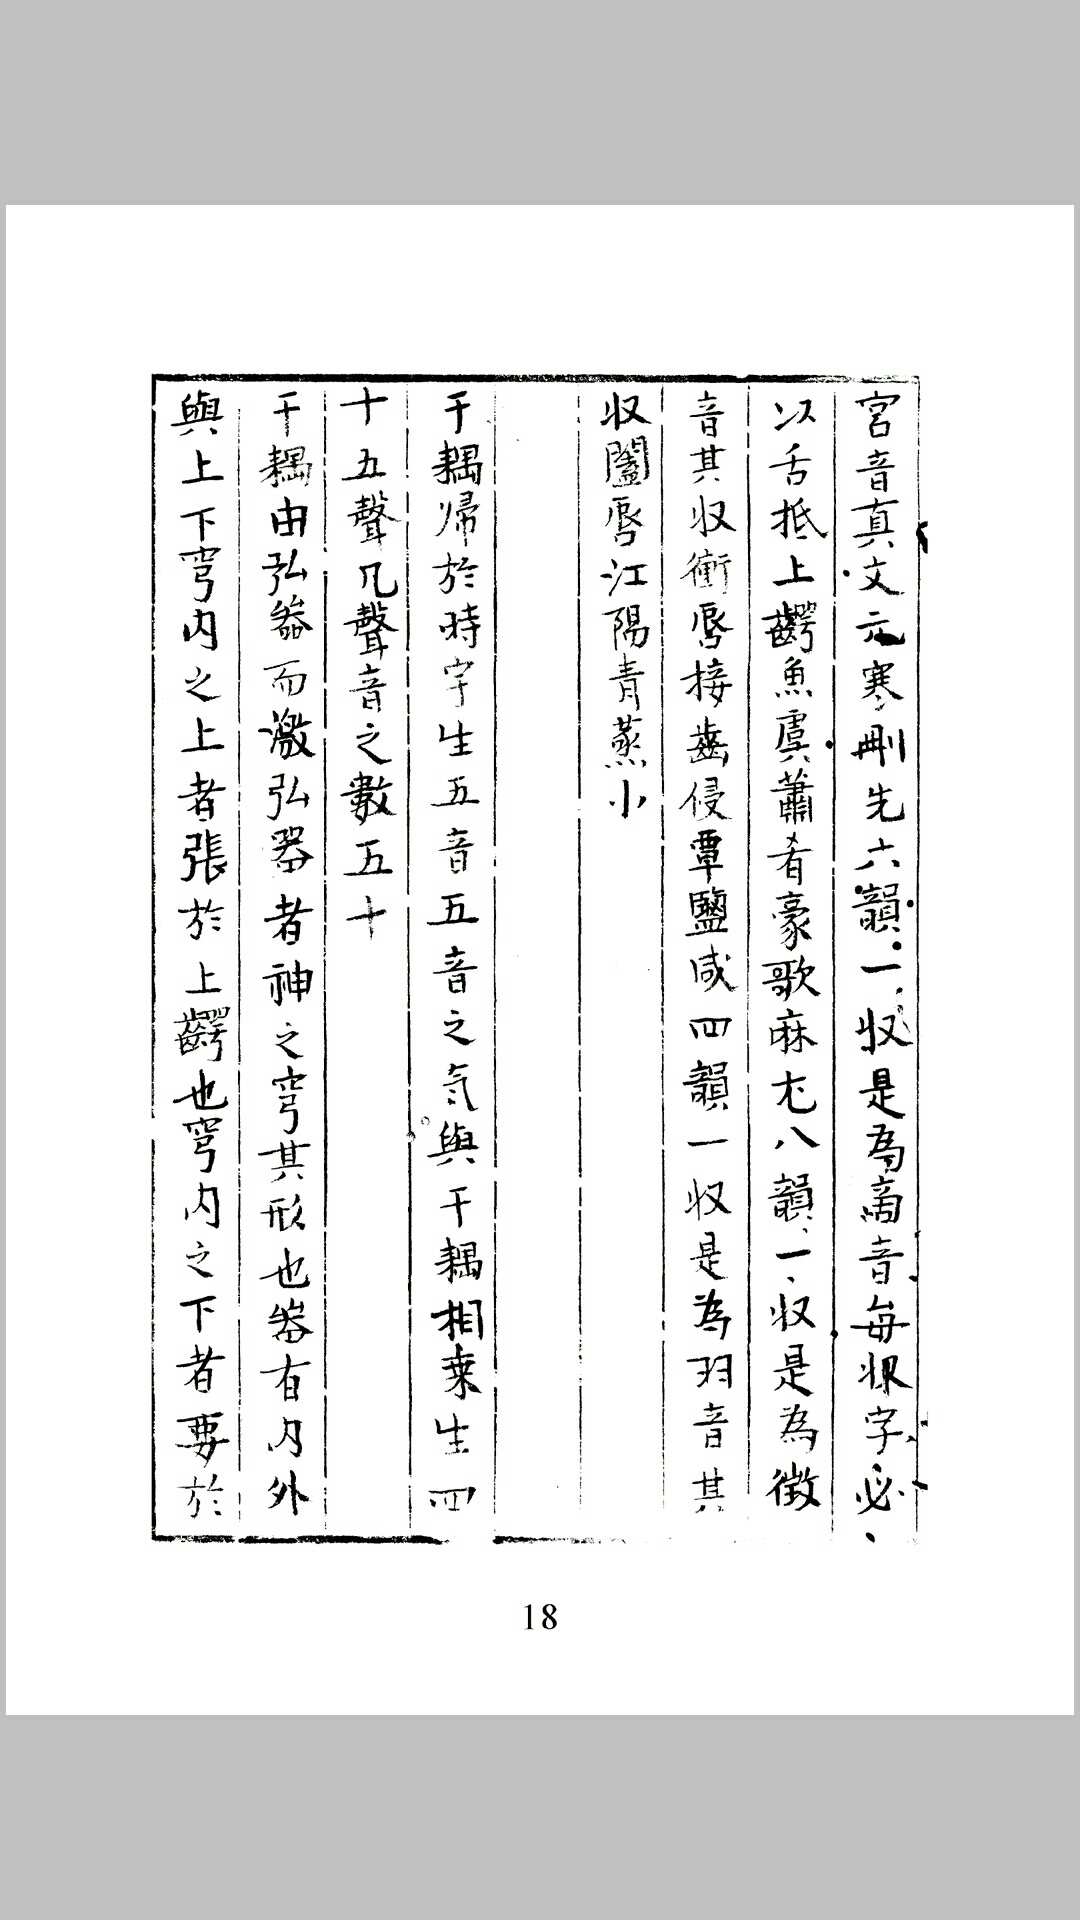 宮音真文元寒刪先六韻一收是為商音每收字必
以舌抵上齶魚虞蕭肴豪歌麻尤八韻一收是為徵
音其收衝唇接齒侵覃鹽咸四韻一收是為羽音其
收闔唇江陽青蒸小
干耦歸於時字生五音五音之气與干耦相乘生四
十五聲凡聲音之數五十
干耦由弘器而激弘器者神之穹其形也器有內外
與上下穹內之上者張於上齶也穹內之下者要於
18